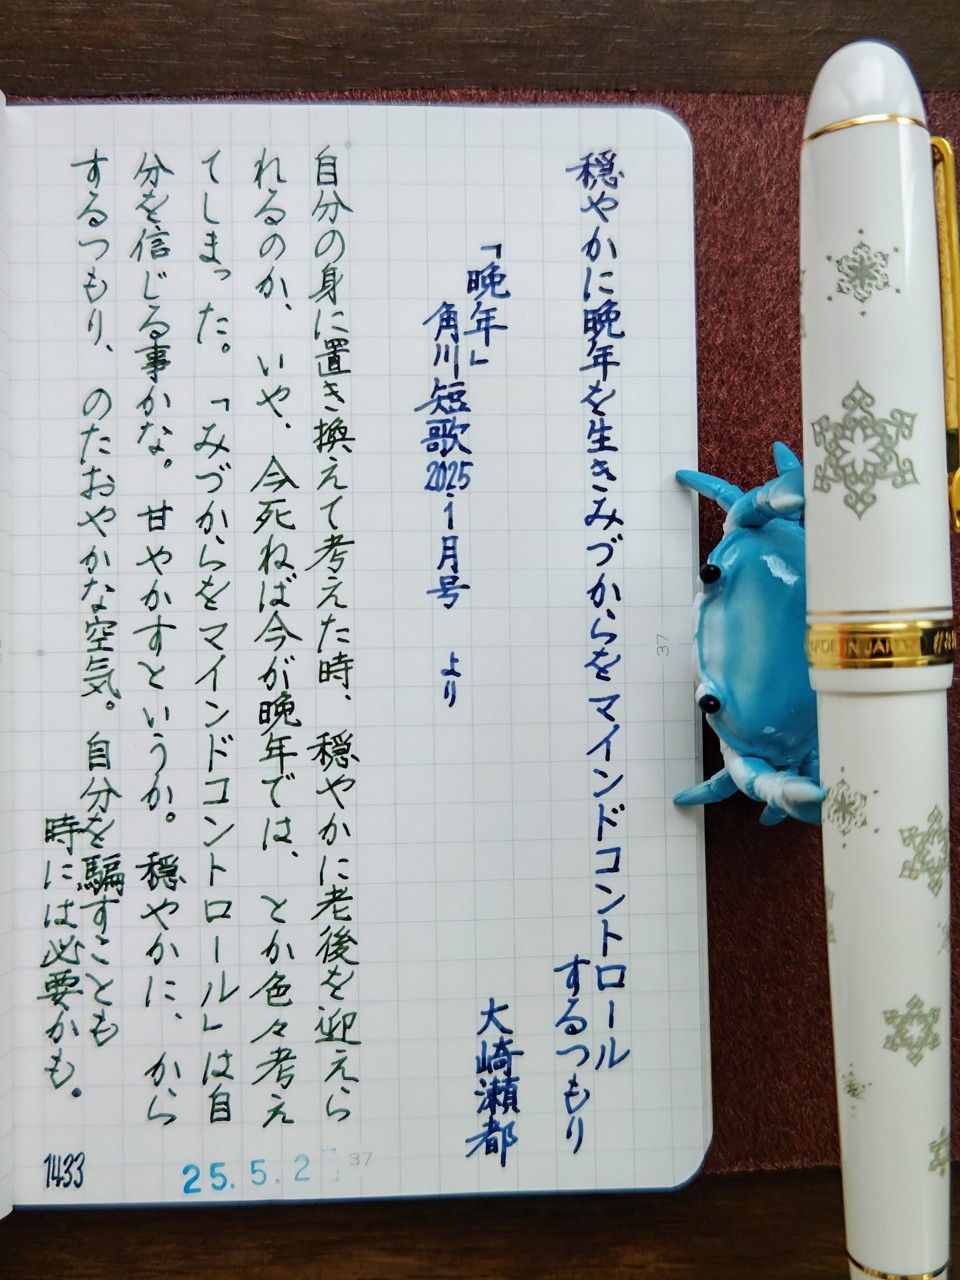 穏やかに晩年を生きみづからをマインドコントロール
するつもり
「晩年」
大崎瀬都
角川短歌2025.1月号 より
自分の身に置き換えて考えた時、穏やかに老後を迎えら
れるのか、いや、今死ねば今が晩年では、とか色々考え
てしまった。「みづからをマインドコントロール」は自
分を信じる事かな。甘やかすというか。穏やかに、から
するつもり、のたおやかな空気。自分を騙すことも
時には必要かも。
1433
25.5.2
37
37
MADE IN JAPAN